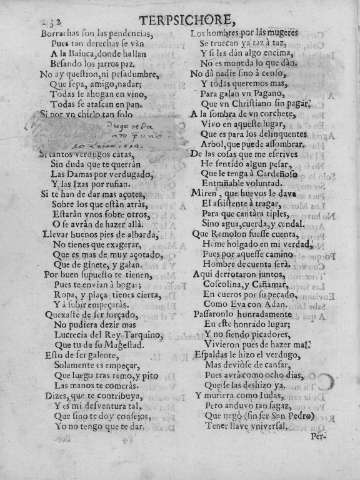 232 TERPSICHORE,
Borrachas son las pendencias,
Pues tan derechas se vàn
A la Baiuca, donde hallan
Besando los jarros paz.
No ay question, ni pesadumbre,
Que sepa, amigo, nadar;
Todas se ahogan en vino,
Todas se atascan en pan.
Si por vn chirlo tan solo
Si tantos verdugos catas,
Sin duda que te querràn
Las Damas por verdugado,
Y las Izas por rufian.
Si te han de dar mas açotes,
Sobre los que estàn atràs,
Estaràn vnos sobre otros,
O se avràn de hazer allà.
Llevar buenos pies de albarda,
No tienes que exagerar,
Que es mas de muy açotado,
Que de ginete, y galan.
Por buen supuesto te tienen,
Pues te envian à bogar;
Ropa, y plaça tienes cierta,
Y à subir empeçaràs.
Quexaste de ser forçado,
No pudiera dezir mas
Lucrecia del Rey Tarquino,
Que tu da su Magestad.
Esto de ser galeote,
Solamente es empeçar,
Que luego tras remo, y pito
Las manos te comeràs.
Dizes, que te contribuya,
Y es mi desventura tal,
Que sino te doy consejos,
Yo no tengo que te dar.
Los hombres por las mugeres
Se truecan ya taz à taz,
Y si les dàn algo encima,
No es moneda lo que dàn.
No dà nadie sino à censo,
Y todas queremos mas,
Para galan vn Pagano,
Que vn Christiano sin pagar.
A la sombra de vn corchete,
Vivo en aqueste lugar,
Que es para los delinquentes
Arbol, que puede assombrar.
De las cosas que me escrives
He sentido algun pesar,
Que le tengo à Cardeñoso
Entrañable voluntad.
Miren, que huevos le dava
El assistente à tragar,
Para que cantàra tiples,
Sino agua, cuerda, y cendal.
Que Remolon fuesse cuenta,
He me holgado en mi verdad,
Pues por aquesse camino
Hombre de cuenta serà.
Aqui derrotaron juntos,
Coscolina, y Cañamar,
En cueros por su pecado,
Como Eva con Adan.
Passaronlo honradamente
En este honrado lugar;
Y no siendo picadores,
Vivieron pues de hazer mal.
Espaldas le hizo el verdugo,
Mas deviòse de cansar,
Pues avrà como ocho dias,
Que se las deshizo ya.
Y muriera como Iudas,
Pero anduvo tan sagaz,
Que negò (sin ser San Pedro)
Tener llave vniversal.
Per-